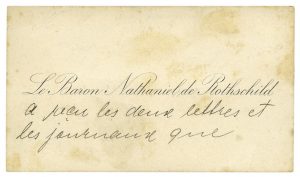 Le Baron Nathaniel de Rothschild
a reçu les deux lettres et
les journaux que